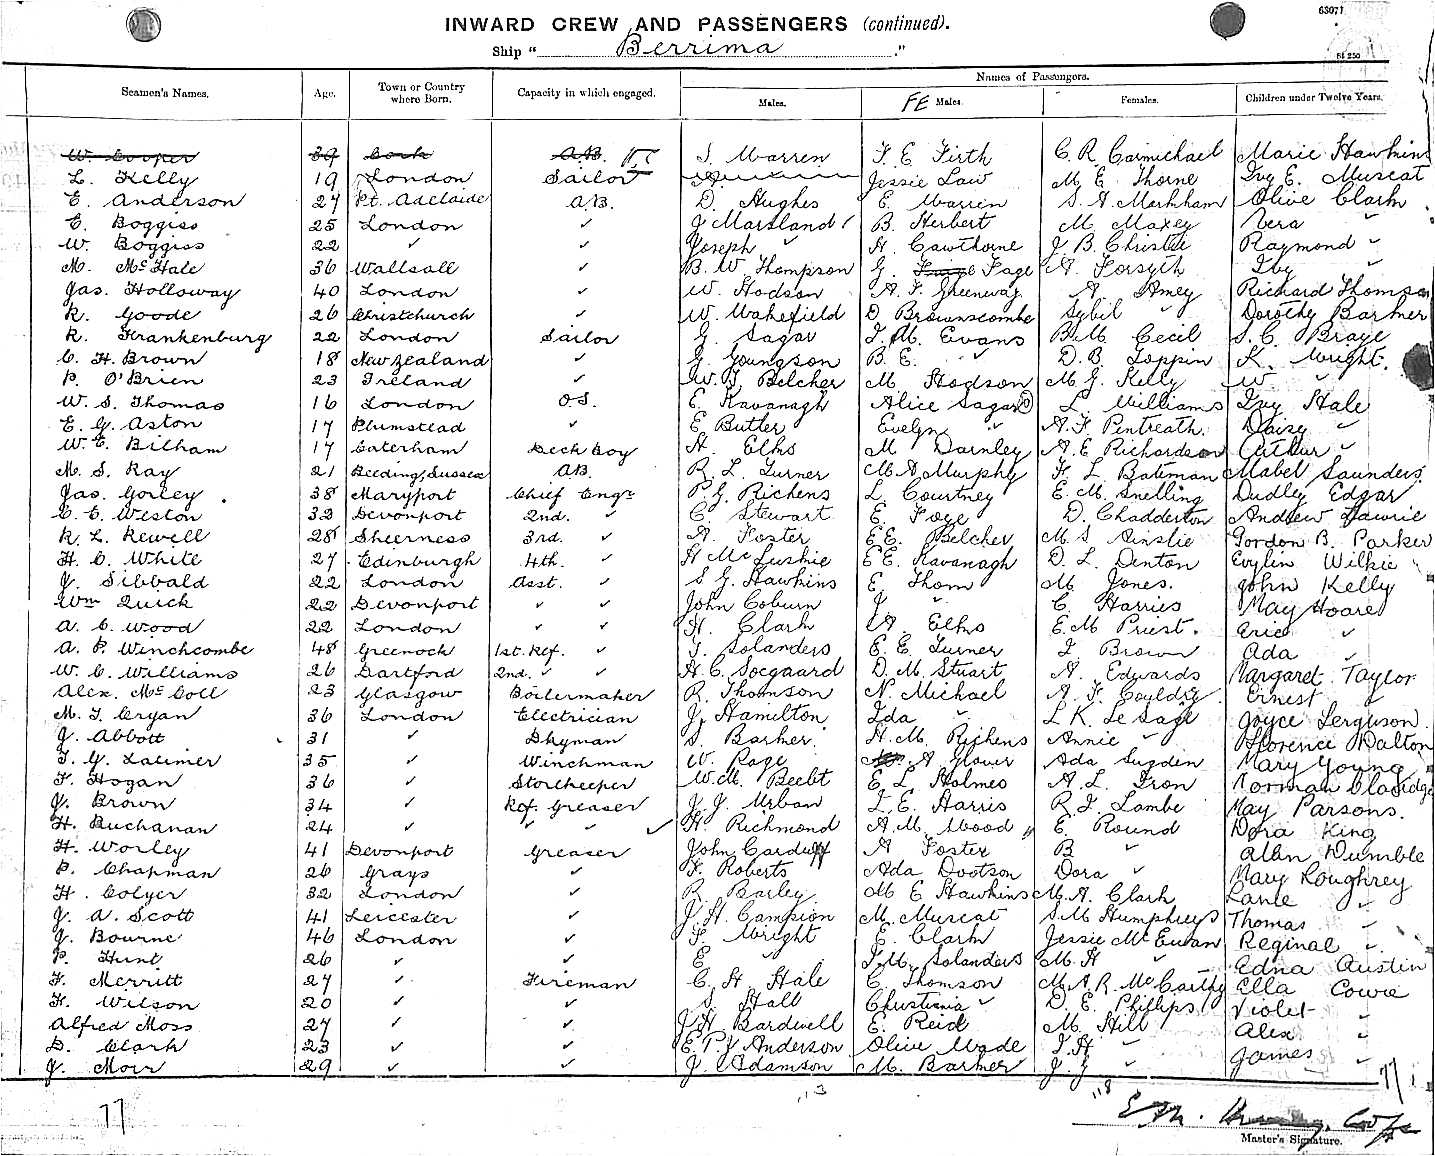 63071
INWARD CREW AND PASSENGERS (continued).
Ship " Berrima ."
Names of Passengers.
Seamen's Names. Age. Town or Country where Born. Capacity in which engaged. Males. FE Males. Females. Children under Twelve Years.
W. Cooper 39 Cork A.B. S. Warren F. E. Firth C. R. Carmichael Marie Hawkins
L. Kelly 19 London Sailor Jessie Law M. E. Thorne Ivy E. Muscat
E. Anderson 27 Pt. Adelaide A.B. D. Hughes E. Warren S. A. Markham Olive Clark
C. Boggiss 25 London ✓ J Marsland B. Herbert M. Maxey Vera "
W. Boggiss 22 ✓ ✓ Joseph " H. Cawthorne J. B. Christie Raymond "
M. McHale 36 Wallsall ✓ B. W. Thompson G. Page A. Forsyth Ivy "
Jas. Holloway 40 London ✓ W. Hodson A. F. Greenway A Amey Richard Thomson
R. Goode 26 Christchurch ✓ W. Wakefield D. Brownscombe Sybil " Dorothy Barker
R. Frankenburg 22 London Sailor G. Sagar I. M. Evans B. M. Cecil S. C. Braye
C. H. Brown 18 New Zealand ✓ G. Youngson B. E. " D. B. Toppin K. Wright.
P. O'Brien 23 Ireland ✓ W. J. Belcher M. Hodson M. G. Kelly W "
W. S. Thomas 16 London O.S. E. Kavanagh Alice Sagar L. Williams Ivy Hale
E. G. Aston 17 Plumstead ✓ E Butler Evelyn " A. F. Pentreath. Daisy "
W. E. Bilham 17 Caterham Deck Boy H. Elks M. Darnley A. E. Richardson Arthur "
M. S. Ray 21 Beeding, Sussex A.B. R. L. Turner M. A. Murphy F. L. Bateman Mabel Saunders
Jas. Gorley 38 Maryport Chief Engr P. G. Richens L. Courtney E. M. Snelling Dudley Edgar
C. E. Weston 32 Devonport 2nd. ✓ C. Stewart E. Foye D. Chadderton Andrew Lawrie
R. L. Rewell 28 Sheerness 3rd. ✓ A. Foster E. E. Belcher M. S. Ainslie Gordon B. Parker
H. C. White 27 Edinburgh 4th. ✓ H McLuskie E. E. Kavanagh D. L. Denton Evylin Wilkie
J. Sibbald 22 London Asst. ✓ S. G. Hawkins E. Thom M. Jones. John Kelly
Wm Quick 22 Devonport ✓ ✓ John Coburn J " C. Harries May Hoare
A. C. Wood 22 London ✓ ✓ H. Clark A. Elks E. M. Priest. Eric "
A. P. Winchcombe 48 Greenock 1st. Ref. ✓ T. Solanders E. E. Turner J. Brown Ada "
W. C. Williams 26 Dartford 2nd. ✓ ✓ H. C. Socgaard D. M. Stuart A. Edwards Margaret Taylor
Alex. McColl 23 Glasgow Boilermaker R. Thomson N. Michael A. F. Couldry Ernest "
M. J. Cryan 36 London Electrician J. Hamilton Ida " L. K. Le Sage Joyce Ferguson.
J. Abbott 31 ✓ Dkyman S. Barker. H. M. Richens Annie " Florence Dalton
T. G. Latimer 35 ✓ Winchman W. Page A Glover Ada Sugden Mary Young
F. Hogan 36 ✓ Storekeeper W. M. Beebt E. L. Holmes A. L. Tron Norman
J. Brown 34 ✓ Ref. Greaser J. J. Urban L. E. Harris R. J. Lambe May Parsons.
H. Buchanan 24 ✓ ✓ ✓ H. Richmond A. M. Wood E. Round Dora King
H. Worley 41 Devonport Greaser John Carduff A Foster B " Allan Dumble
P. Chapman 26 Grays ✓ F. Roberts Ada Dootson Dora " Mary Loughrey
H. Colyer 32 London ✓ R. Bailey M. E. Hawkins M. A. Clark "
J. A. Scott 41 Leicester ✓ J. H. Campion M. Muscat S. M. Humphreys Thomas "
J. Bourne 46 London ✓ F. Wright E. Clark Jessie McEwan Reginal "
P. Hunt 26 ✓ ✓ E " I. M. Solanders M. H " Edna Austin
F. Merritt 27 ✓ Fireman C. H. Hale C. Thomson M. A. R. McCarthy Ella Cowie
H. Wilson 20 ✓ ✓ S. Hall Christinia " D. E. Phillips Violet "
Alfred Moss 27 ✓ ✓ J. H. Bardwell E. Reid M. Hill Alex "
D. Clark 23 ✓ ✓ E. P. J. Anderson Olive Wade I. H. " James "
J. Moir 29 ✓ ✓ J. Adamson M. Barker J. J "
77
Master's Signature.